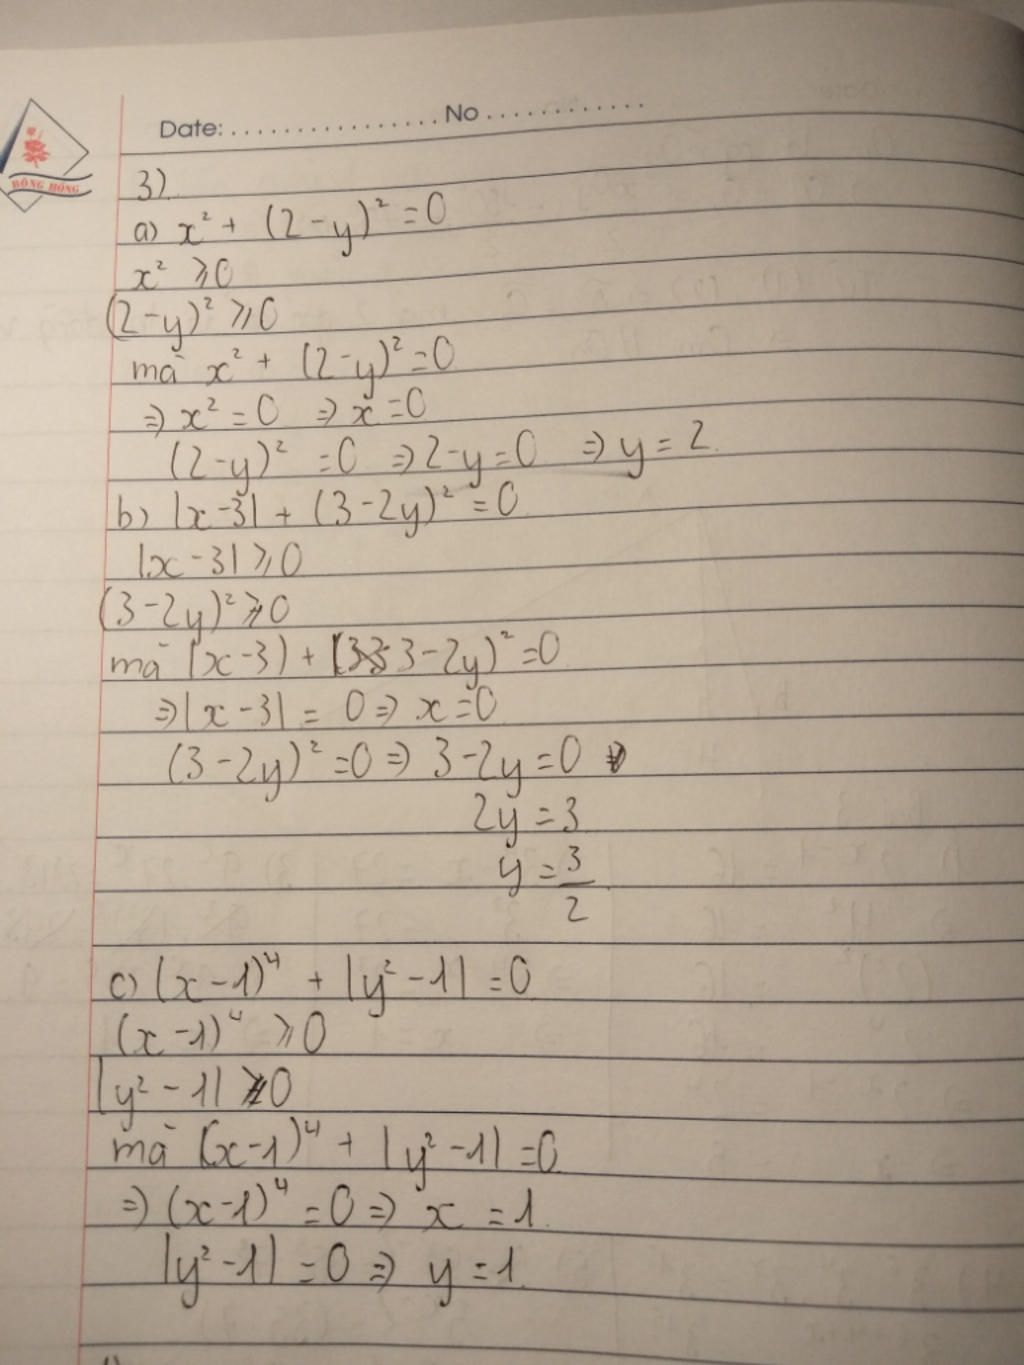 Date: ................. No .............
BÔNG HỒNG
3).
a) x² + (2-y)² = 0
x² ⩾ 0
(2-y)² ⩾ 0
mà x² + (2-y)² = 0
⇒ x² = 0 ⇒ x = 0
(2-y)² = 0 ⇒ 2-y = 0 ⇒ y = 2.
b) |x-3| + (3-2y)² = 0
|x-3| ⩾ 0
(3-2y)² ⩾ 0
mà (x-3) + (3-2y)² = 0
⇒ |x-3| = 0 ⇒ x = 0
(3-2y)² = 0 ⇒ 3-2y = 0
2y = 3
y = 3/2
c) (x-1)⁴ + |y²-1| = 0
(x-1)⁴ ⩾ 0
|y²-1| ⩾ 0
mà (x-1)⁴ + |y²-1| = 0
⇒ (x-1)⁴ = 0 ⇒ x = 1.
|y²-1| = 0 ⇒ y = 1.